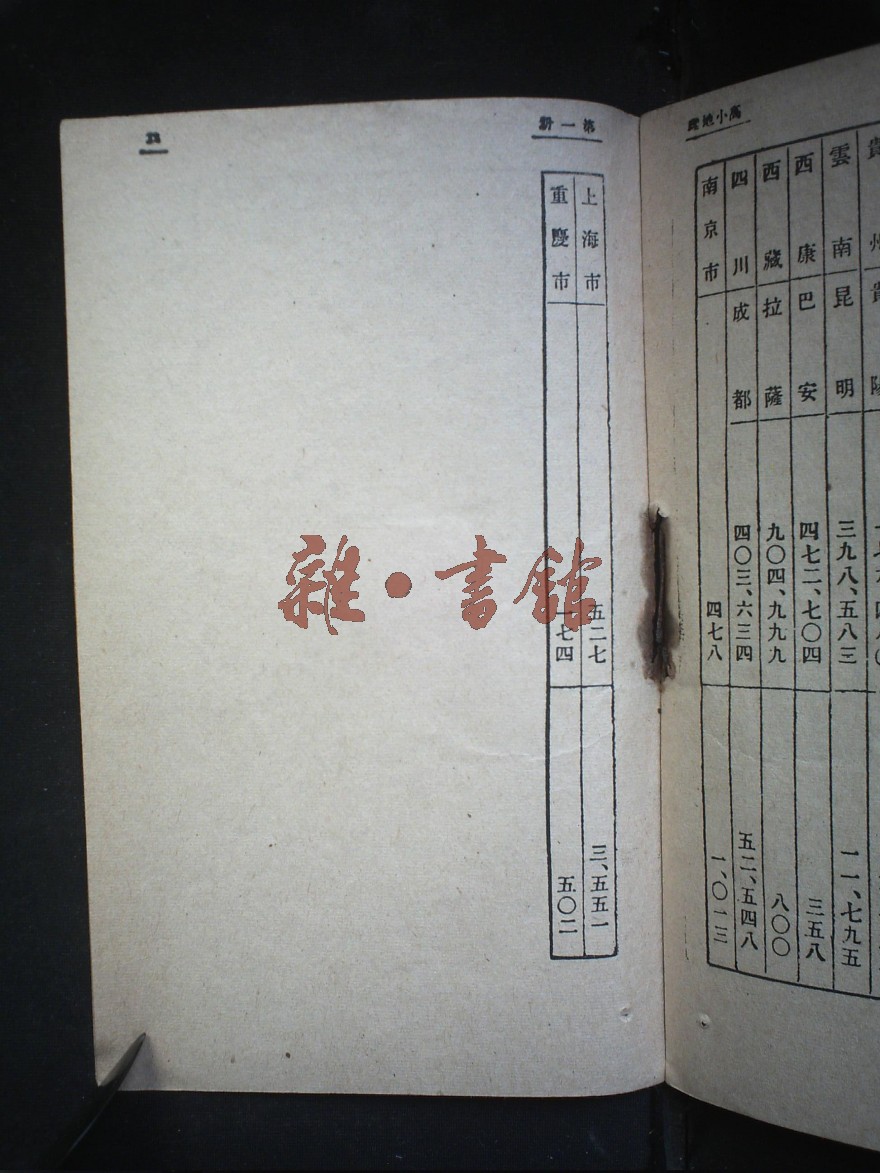 高小地理
貴州 貴陽
雲南 昆明 三九八、五八三 一一、七九五
西康 巴安 四七二、七〇四 三五八
西藏 拉薩 九〇四、九九九 八〇〇
四川 成都 四〇三、六三四 五二、五四八
南京市 四七八 一、〇一三
第一册
上海市 五二七 三、五五一
重慶市 一七四 五〇二
雜·書館